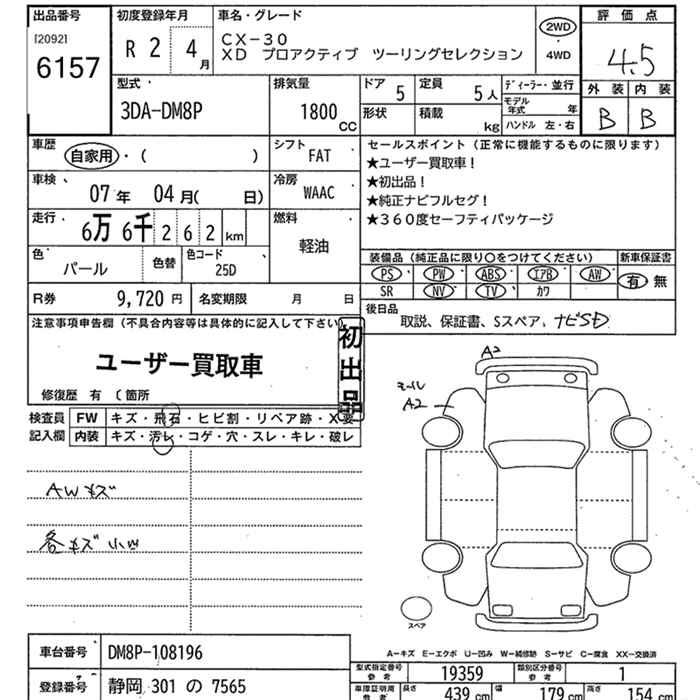 出品番号
[2092]
6157
初度登録年月
R 2 4月
車名・グレード
CX-30
XD プロアクティブ ツーリングセレクション
2WD
・
4WD
評価点
4.5
外装 内装
B B
型式
3DA-DM8P
排気量
1800 CC
ドア 5
定員 5人
形状
積載 kg
ディーラー・並行
モデル年式 年
ハンドル 左・右
車歴
自家用・( )
シフト
FAT
車検
07年 04月( 日)
冷房
WAAC
走行
6万 6千 2 6 2 km
燃料
軽油
色
パール
色替
色コード
25D
R券 9,720円
名変期限 月 日
セールスポイント(正常に機能するものに限ります)
★ユーザー買取車!
★初出品!
★純正ナビフルセグ!
★360度セーフティパッケージ
装備品(純正品に限り○をつけてください)
新車保証書
PS PW ABS エアB AW
SR NV TV カワ
有 無
後日品
取説、保証書、Sスペア、ナビSD
注意事項申告欄(不具合内容等は具体的に記入して下さい)
ユーザー買取車
初出品
修復歴 有 〔箇所
検査員記入欄
FW キズ・飛石・ヒビ割・リペア跡・X要
内装 キズ・汚レ・コゲ・穴・スレ・キレ・破レ
AWキズ
各キズ小凹
A2
モール
A2
スペア
A-キズ E-エクボ U-凹み W-補修跡 S-サビ C-腐食 XX-交換済
車台番号 DM8P-108196
登録番号 静岡 301 の 7565
型式指定番号 参考 19359
類別区分番号 参考 1
車庫証明用 参考
長さ 439 cm
幅 179 cm
高さ 154 cm